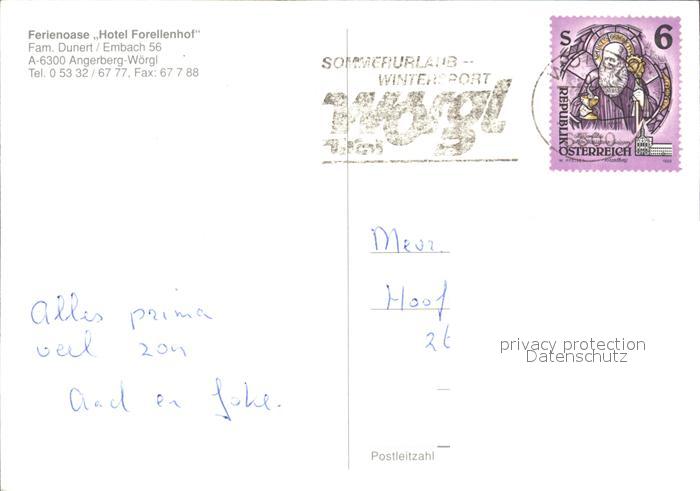 Ferienoase „Hotel Forellenhof“
Fam. Dunert / Embach 56
A-6300 Angerberg-Wörgl
Tel. 0 53 32 / 67 77, Fax: 67 7 88
SOMMERURLAUB --
WINTERSPORT
wörgl
tirol
S 6
REPUBLIK
ÖSTERREICH
Mevr.
Hoof
26
privacy protection
Datenschutz
Alles prima
veel zon
Aad en Joke.
Postleitzahl